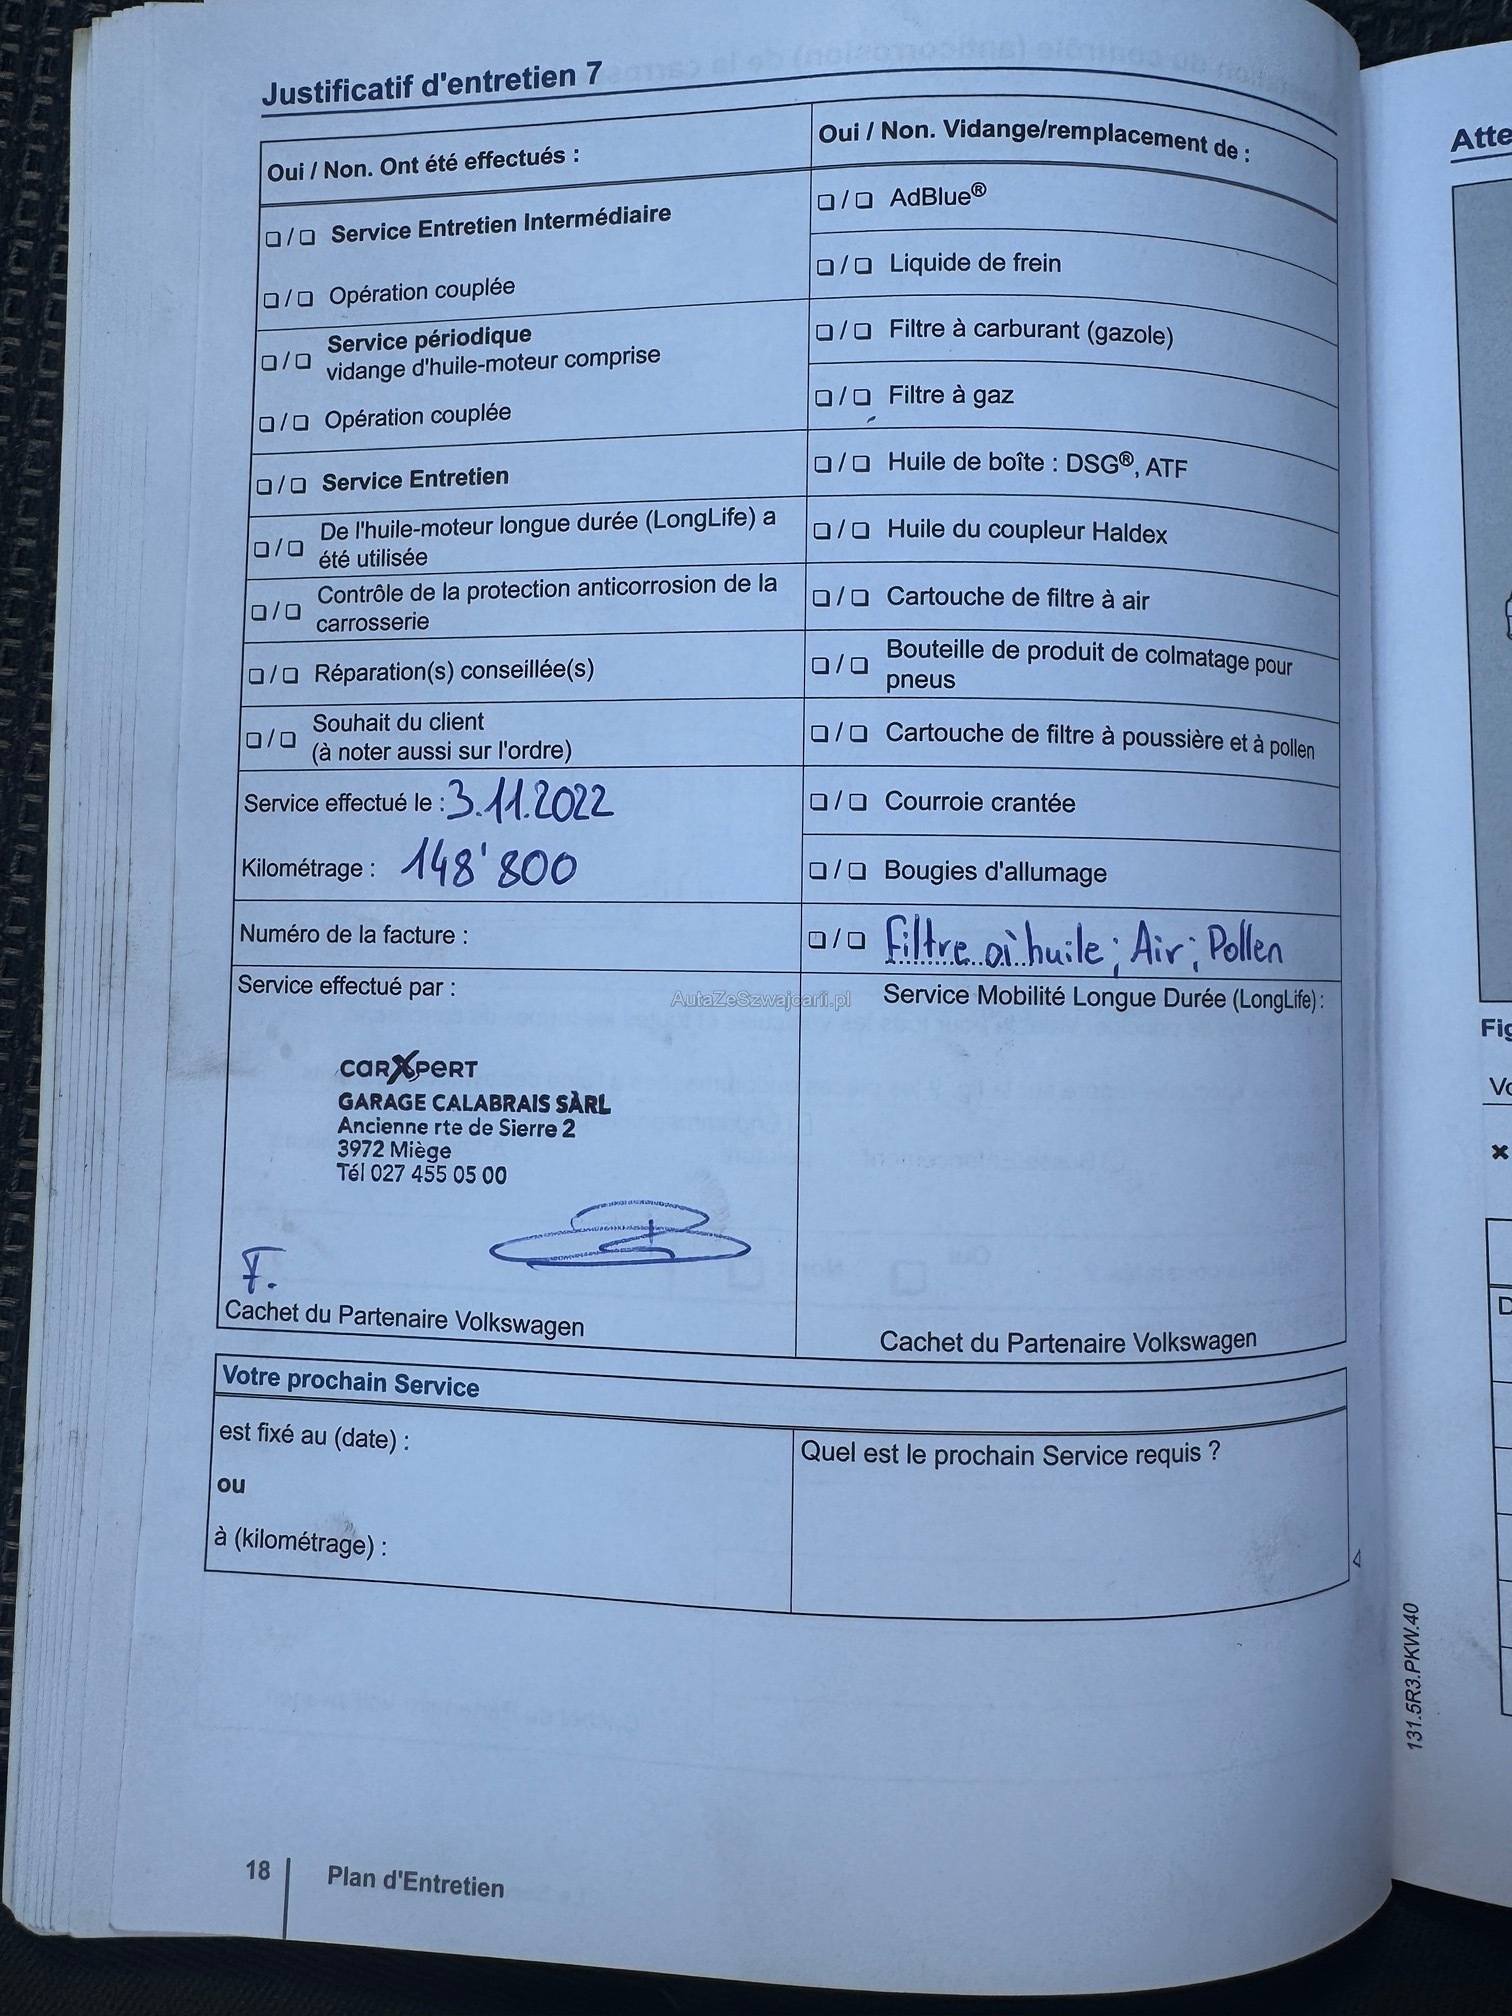 Justificatif d'entretien 7
Oui / Non. Ont été effectués :
❑ / ❑ Service Entretien Intermédiaire
❑ / ❑ Opération couplée
❑ / ❑ Service périodique
vidange d'huile-moteur comprise
❑ / ❑ Opération couplée
❑ / ❑ Service Entretien
❑ / ❑ De l'huile-moteur longue durée (LongLife) a
été utilisée
❑ / ❑ Contrôle de la protection anticorrosion de la
carrosserie
❑ / ❑ Réparation(s) conseillée(s)
❑ / ❑ Souhait du client
(à noter aussi sur l'ordre)
Service effectué le : 3.11.2022
Kilométrage : 148'800
Numéro de la facture :
Service effectué par :
carXpert
GARAGE CALABRAIS SÀRL
Ancienne rte de Sierre 2
3972 Miège
Tél 027 455 05 00
F.
Cachet du Partenaire Volkswagen
Oui / Non. Vidange/remplacement de :
❑ / ❑ AdBlue®
❑ / ❑ Liquide de frein
❑ / ❑ Filtre à carburant (gazole)
❑ / ❑ Filtre à gaz
❑ / ❑ Huile de boîte : DSG®, ATF
❑ / ❑ Huile du coupleur Haldex
❑ / ❑ Cartouche de filtre à air
❑ / ❑ Bouteille de produit de colmatage pour
pneus
❑ / ❑ Cartouche de filtre à poussière et à pollen
❑ / ❑ Courroie crantée
❑ / ❑ Bougies d'allumage
❑ / ❑ Filtre à huile ; Air ; Pollen
AutaZeSzwajcarii.pl
Service Mobilité Longue Durée (LongLife) :
Cachet du Partenaire Volkswagen
Votre prochain Service
est fixé au (date) :
ou
à (kilométrage) :
Quel est le prochain Service requis ?
131.5R3.PKW.40
18
Plan d'Entretien
Atte
Fig
Vo
D